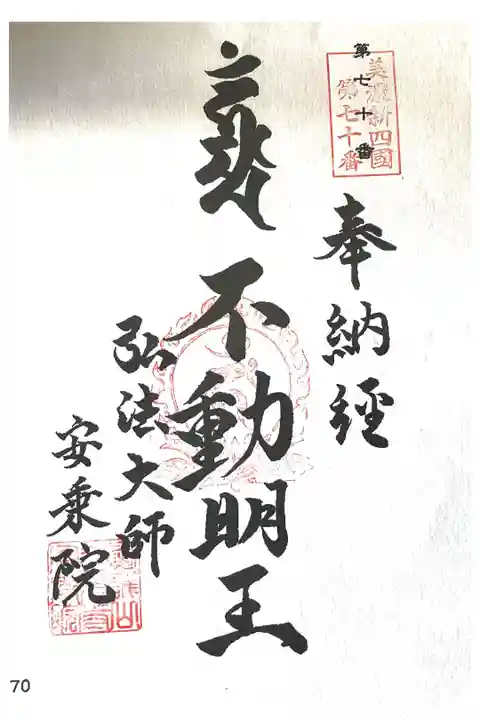 第七十番
美濃新四國
第七十番
奉納経
不動明王
弘法大師
安乗院
70